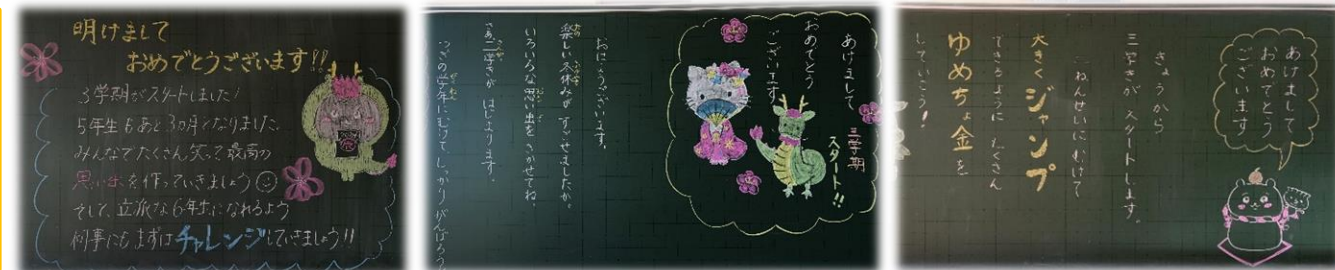 明けまして
おめでとうございます!!
3学期がスタートしました!
5年生もあと3カ月となりました。
みんなでたくさん笑って最高の
思い出を作っていきましょう
そして、立派な6年生になれるよう
何事にもまずはチャレンジしていきましょう!!
あけまして
おめでとう
ございます。
三学期
スタート!!
おはようございます。
楽しい冬休みがすごせましたか。
いろいろな思い出をきかせてね。
さあ三学きがはじまります。
つぎの学年にむけて、しっかりがんばろう。
あけまして
おめでとう
ございます
きょうから
三学きがスタートします。
二ねんせいにむけて
大きくジャンプ
できるようにたくさん
ゆめちょ金を
していこう!